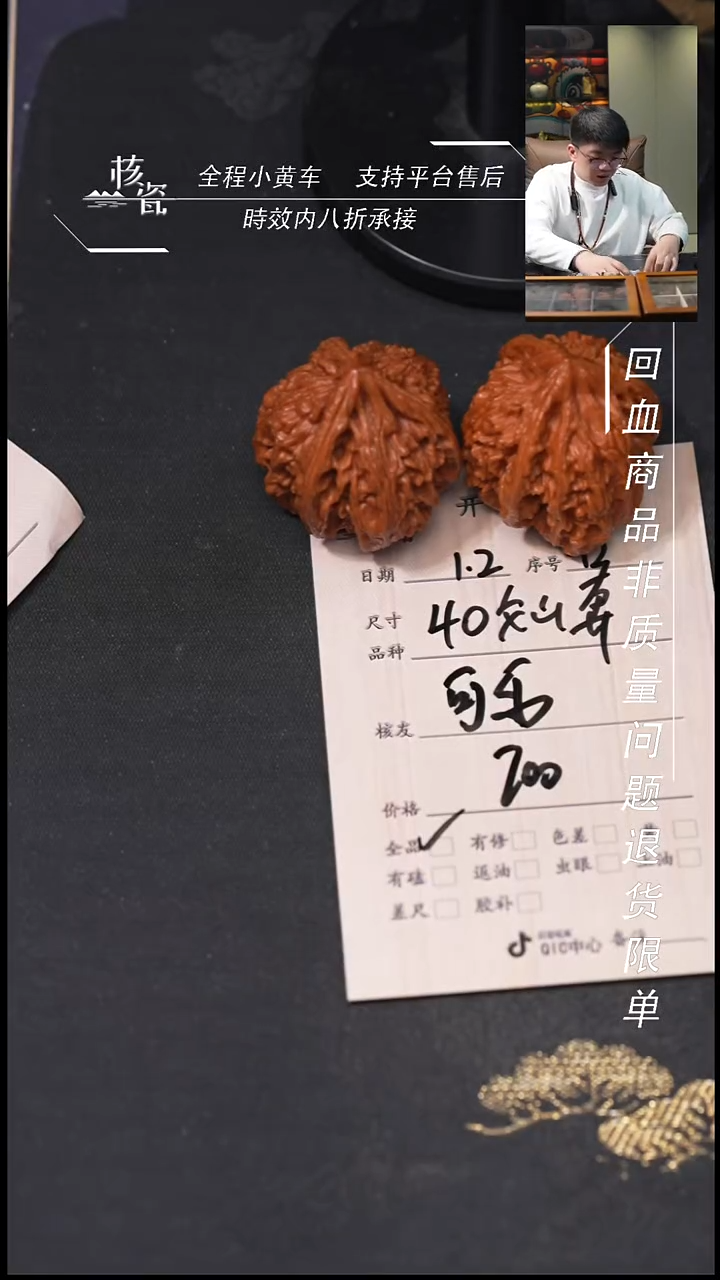 核瓷
全程小黄车 支持平台售后
時效内八折承接
回血商品非质量问题退货限单
开
日期 1.2 序号
尺寸 40
品种
核友 可乐
价格 700
全品 ✓ 有修 色差
有磕 返油 虫眼 油
差尺 胶补
QIC中心 备注